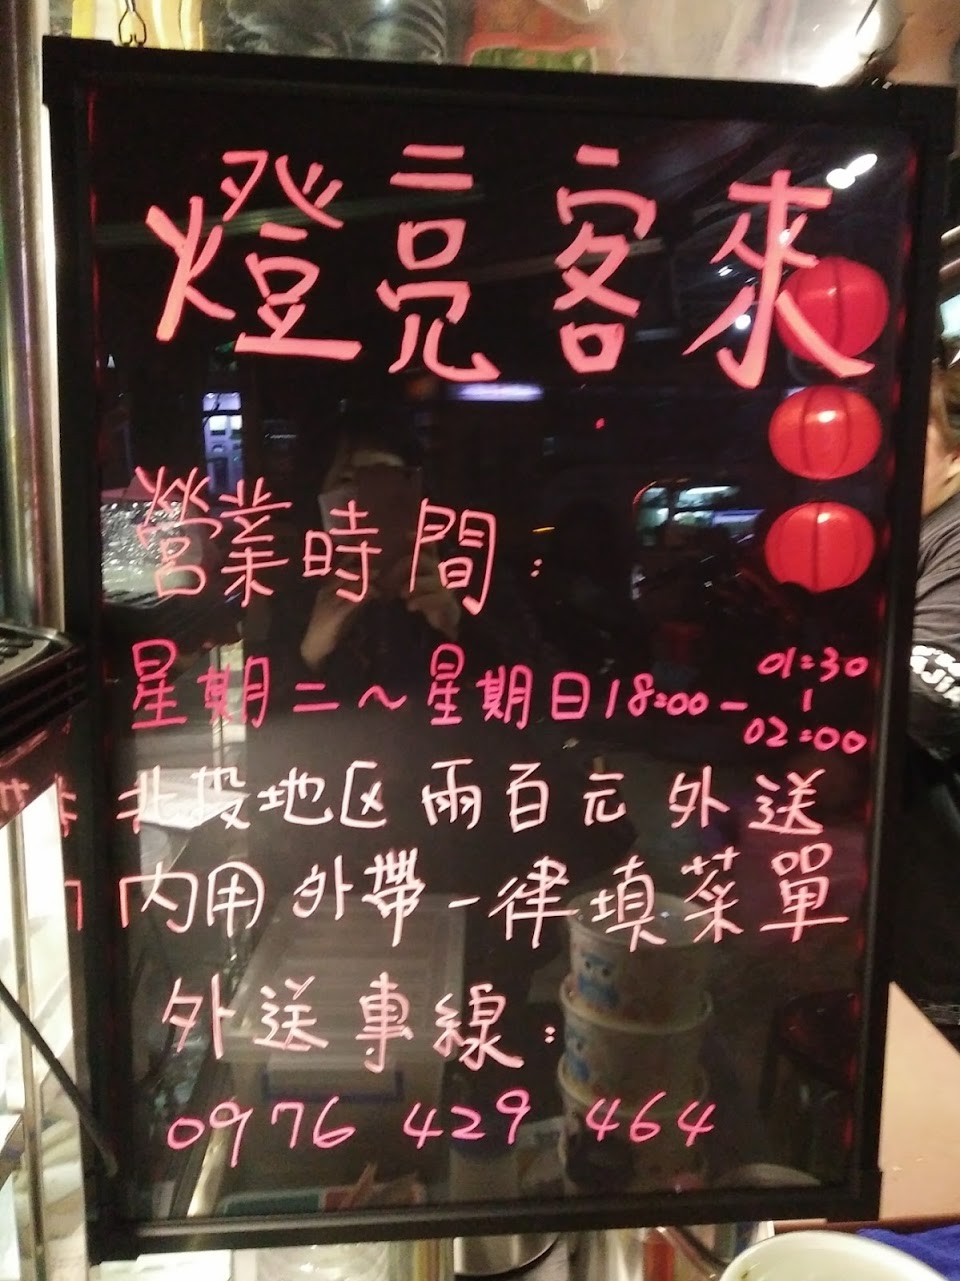 燈亮客來
營業時間：
星期二～星期日18:00-01:30
|
02:00
北投地区兩百元外送
內用外帶一律填菜單
外送專線：
0976 429 464